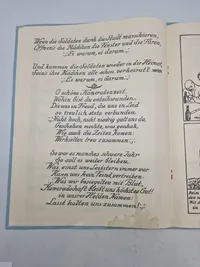 Wenn die Soldaten durch die Stadt marschieren,
Öffnen die Mädchen die Fenster und die Türen.
Ei warum, ei darum
Und kommen die Soldaten wieder in die Heimat,
sind ihre Mädchen alle schon verheiratet
Ei warum, ei darum
O schöne Kameradenzeit,
Wohin bist du entschwunden
Da uns in Freud, da uns in Leid
so treulich stets verbunden
Ruht hoch, nicht niedrig galt uns da,
Geschehen mochte, was geschah,
Wie auch die Zeiten kamen:
Wir hielten treu zusammen
da war so manches schwere Jahr
die soll es weiter bleiben.
Was einst uns Leitstern immer war
Kann uns kein Feind vertreiben.
Was wir besiegelten mit Blut,
Kameradschaft bleibt uns höchstes Gut
in unserm Helden Namen:
Lasst halten uns zusammen!